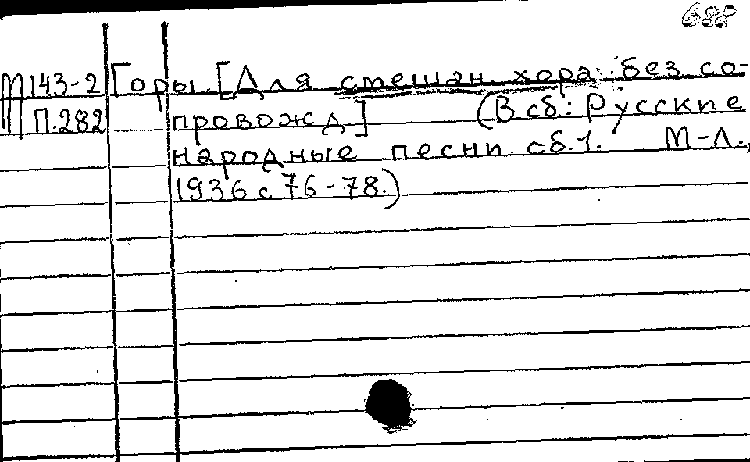 688
М143-2 Горы. [Для смешан. хора без со-
П.282 провожд.] (В сб: Русские
народные песни сб.1. М-Л.,
1936 с. 76-78.)